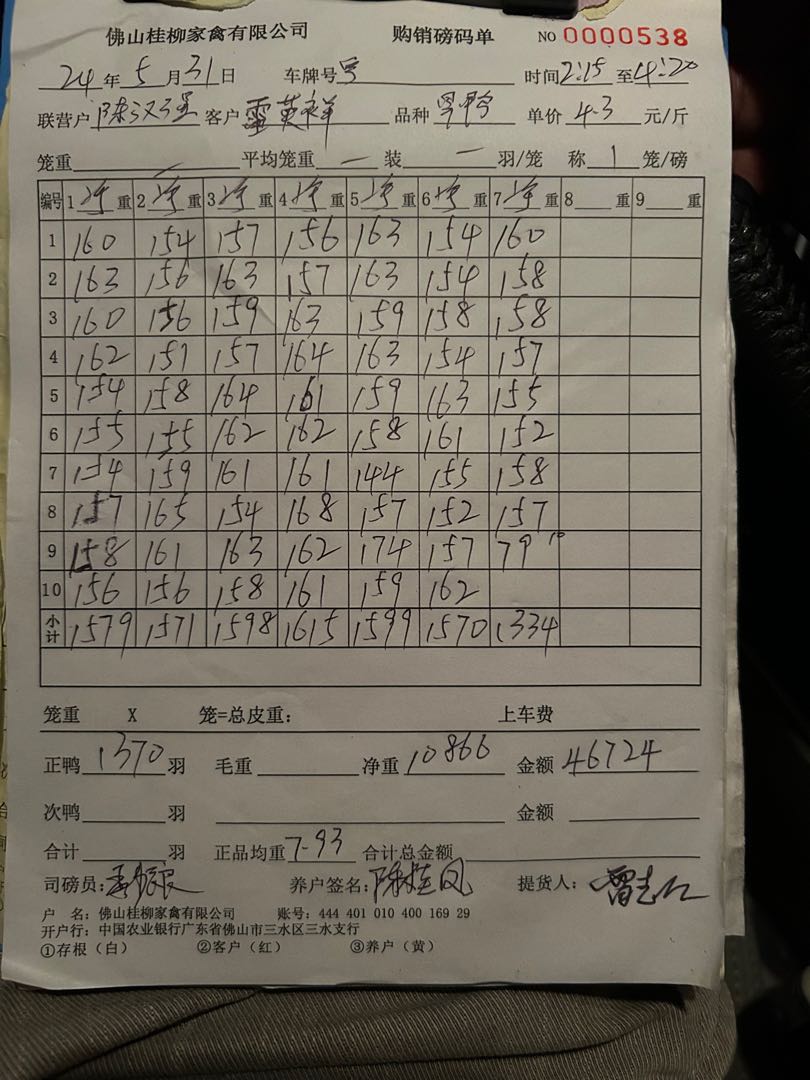 佛山桂柳家禽有限公司 购销磅码单 NO 0000538
24年5月31日 车牌号 时间2:15至4:20
联营户 陈汉强 客户 雷英祥 品种 单价 4.3 元/斤
笼重 — 平均笼重 — 装 — 羽/笼 称 1 笼/磅
编号 1净重 2净重 3净重 4净重 5净重 6净重 7净重 8重 9重
1 160 154 157 156 163 154 160
2 163 156 163 157 163 154 158
3 160 156 159 163 159 158 158
4 162 151 157 164 163 154 157
5 154 158 164 161 159 163 155
6 155 155 162 162 158 161 152
7 154 159 161 161 144 155 158
8 157 165 154 168 157 152 157
9 158 161 163 162 174 157 79 10
10 156 156 158 161 159 162
小计 1579 1571 1598 1615 1599 1570 1334
笼重 X 笼=总皮重: 上车费
正鸭 1370 羽 毛重 净重 10866 金额 46724
次鸭 羽 金额
合计 羽 正品均重 7.93 合计总金额
司磅员: 养户签名: 陈桂凤 提货人: 雷志仁
户 名: 佛山桂柳家禽有限公司 账号: 444 401 010 400 169 29
开户行: 中国农业银行广东省佛山市三水区三水支行
①存根(白) ②客户(红) ③养户(黄)